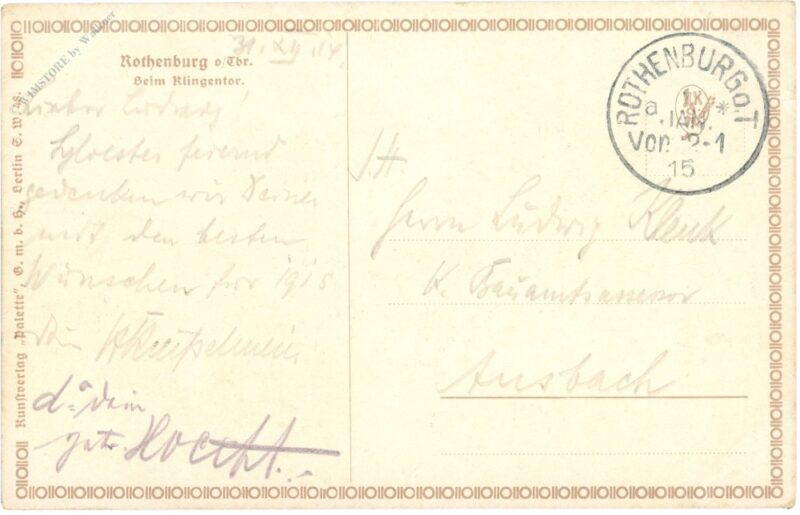 31. XII. 14.
Rothenburg o/Tbr.
Beim Klingentor.
Lieber Ludwig!
Sylvester feiernd
gedenken wir Deiner
mit den besten
Wünschen für 1915
Dein
Hoecht.
Kunstverlag „Palette“, G. m. b. H., Berlin S. W. 48.
ROTHENBURG o.T
1.
JAN.
Vor. 2-1
15
S. H.
Herrn Ludwig Klenk
K. Bauamtsassessor
Ansbach